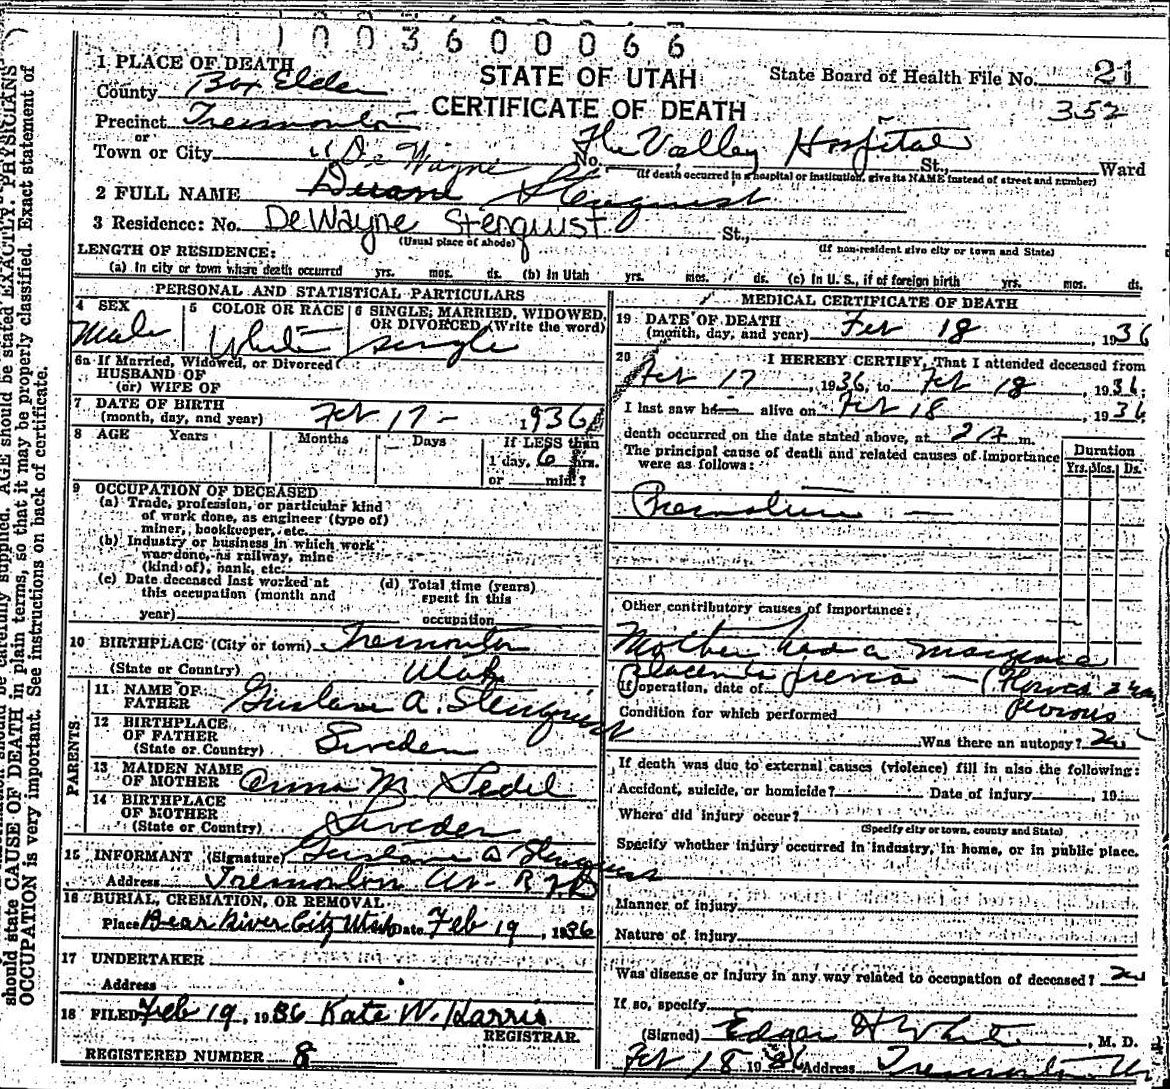 11003600066
STATE OF UTAH
CERTIFICATE OF DEATH
State Board of Health File No. 21
352
1 PLACE OF DEATH
County Box Elder
Precinct Tremonton
or
Town or City
No. The Valley Hospital St., Ward
(If death occurred in a hospital or institution, give its NAME instead of street and number)
"De Wayne
2 FULL NAME Duane Stenquist
3 Residence: No. DeWayne Stenquist St.,
(Usual place of abode) (If non-resident give city or town and State)
LENGTH OF RESIDENCE:
(a) In city or town where death occurred yrs. mos. ds. (b) In Utah yrs. mos. ds. (c) In U. S., if of foreign birth yrs. mos. ds.
PERSONAL AND STATISTICAL PARTICULARS
4 SEX Male
5 COLOR OR RACE White
6 SINGLE, MARRIED, WIDOWED, OR DIVORCED (Write the word) single
6a If Married, Widowed, or Divorced
HUSBAND OF
(or) WIFE OF
7 DATE OF BIRTH
(month, day, and year) Feb 17 - 1936
8 AGE Years Months Days If LESS than
1 day, 6 hrs.
or min.?
9 OCCUPATION OF DECEASED
(a) Trade, profession, or particular kind
of work done, as engineer (type of)
miner, bookkeeper, etc.
(b) Industry or business in which work
was done, as railway, mine
(kind of), bank, etc.
(c) Date deceased last worked at
this occupation (month and
year)
(d) Total time (years)
spent in this
occupation
10 BIRTHPLACE (City or town) Tremonton
(State or Country) Utah
PARENTS
11 NAME OF
FATHER Gustave A. Stenquist
12 BIRTHPLACE
OF FATHER
(State or Country) Sweden
13 MAIDEN NAME
OF MOTHER Anna M
14 BIRTHPLACE
OF MOTHER
(State or Country) Sweden
15 INFORMANT (Signature) Gustave A Stenquist
Address Tremonton Ut
16 BURIAL, CREMATION, OR REMOVAL
Place Bear River City Utah Date Feb 19, 1936
17 UNDERTAKER
Address
18 FILED Feb 19, 1936 Kate W. Harris
REGISTRAR.
REGISTERED NUMBER 8
MEDICAL CERTIFICATE OF DEATH
19 DATE OF DEATH
(month, day, and year) Feb 18, 1936
20 I HEREBY CERTIFY, That I attended deceased from
Feb 17, 1936, to Feb 18, 1936;
I last saw h alive on Feb 18, 1936
death occurred on the date stated above, at 2 A m.
The principal cause of death and related causes of importance
were as follows:
Duration
Yrs. Mos. Ds.
Premature
Other contributory causes of importance:
Mother had a marginal
placenta previa
If operation, date of
Condition for which performed
previous
Was there an autopsy? no
If death was due to external causes (violence) fill in also the following:
Accident, suicide, or homicide? Date of injury , 19
Where did injury occur?
(Specify city or town, county and State)
Specify whether injury occurred in industry, in home, or in public place.
Manner of injury
Nature of injury
Was disease or injury in any way related to occupation of deceased? no
If so, specify
(Signed) Edgar H White, M. D.
Feb 18 1936 Address Tremonton Ut
should state CAUSE OF DEATH in plain terms, so that it may be properly classified. Exact statement of
OCCUPATION is very important. See instructions on back of certificate.
be carefully supplied. AGE should be stated EXACTLY. PHYSICIANS